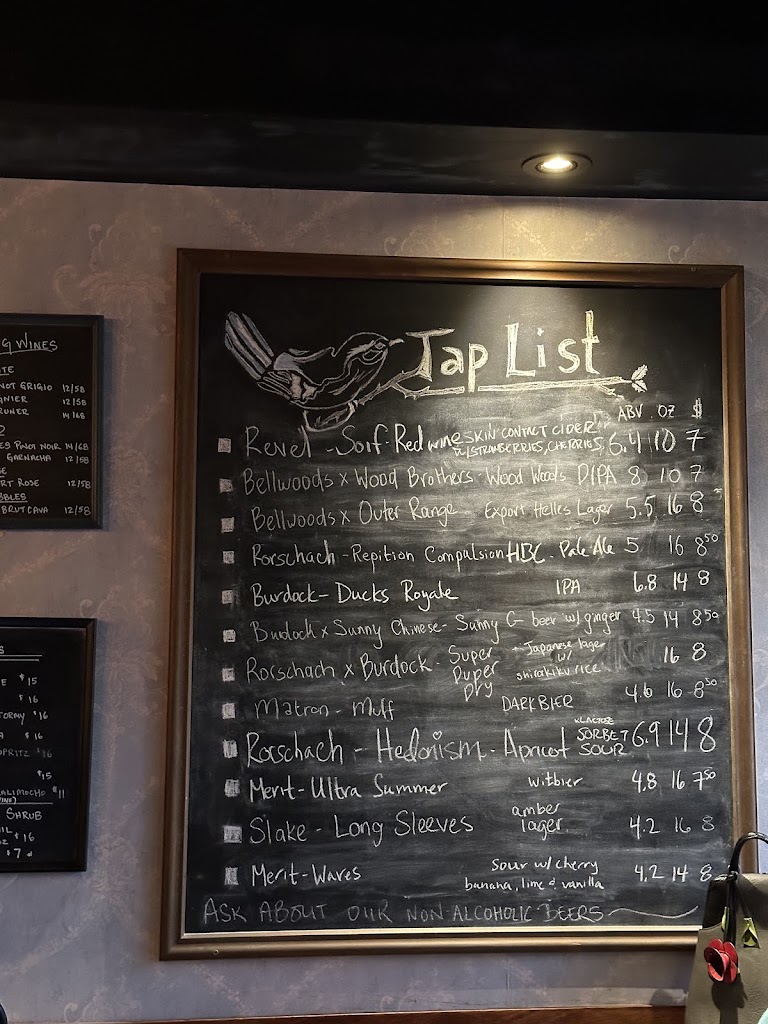 G WINES
NOT GRIGIO 12/58
GNIER 12/58
RUNER 14/68
ES PINOT NOIR 14/68
GARNACHA 12/58
RT ROSE 12/58
BBLES
BRUT CAVA 12/58
$15
$16
$16
A $16
SPRITZ $16
$15
ALIMOCHO $11
SHRUB
$16
$7
Tap List
ABV. OZ $
Revel - Soif - Red wine SKIN CONTACT CIDER W/STRAWBERRIES, CHERRIES 6.4 10 7
Bellwoods x Wood Brothers - Wood Woods DIPA 8 10 7
Bellwoods x Outer Range - Export Helles Lager 5.5 16 8
Rorschach - Repition Compulsion HBC - Pale Ale 5 16 8⁵⁰
Burdock - Ducks Royale IPA 6.8 14 8
Burdock x Sunny Chinese - Sunny G - beer w/ ginger 4.5 14 8⁵⁰
Rorschach x Burdock - Super Duper Dry - Japanese lager w/ shirakiku rice 16 8
Matron - Muff DARK BIER 4.6 16 8⁵⁰
Rorschach - Hedonism - Apricot SORBET SOUR x LACTOSE 6.9 14 8
Merit - Ultra Summer witbier 4.8 16 7⁵⁰
Slake - Long Sleeves amber lager 4.2 16 8
Merit - Waves Sour w/ cherry banana, lime & vanilla 4.2 14 8
ASK ABOUT OUR NON ALCOHOLIC BEERS